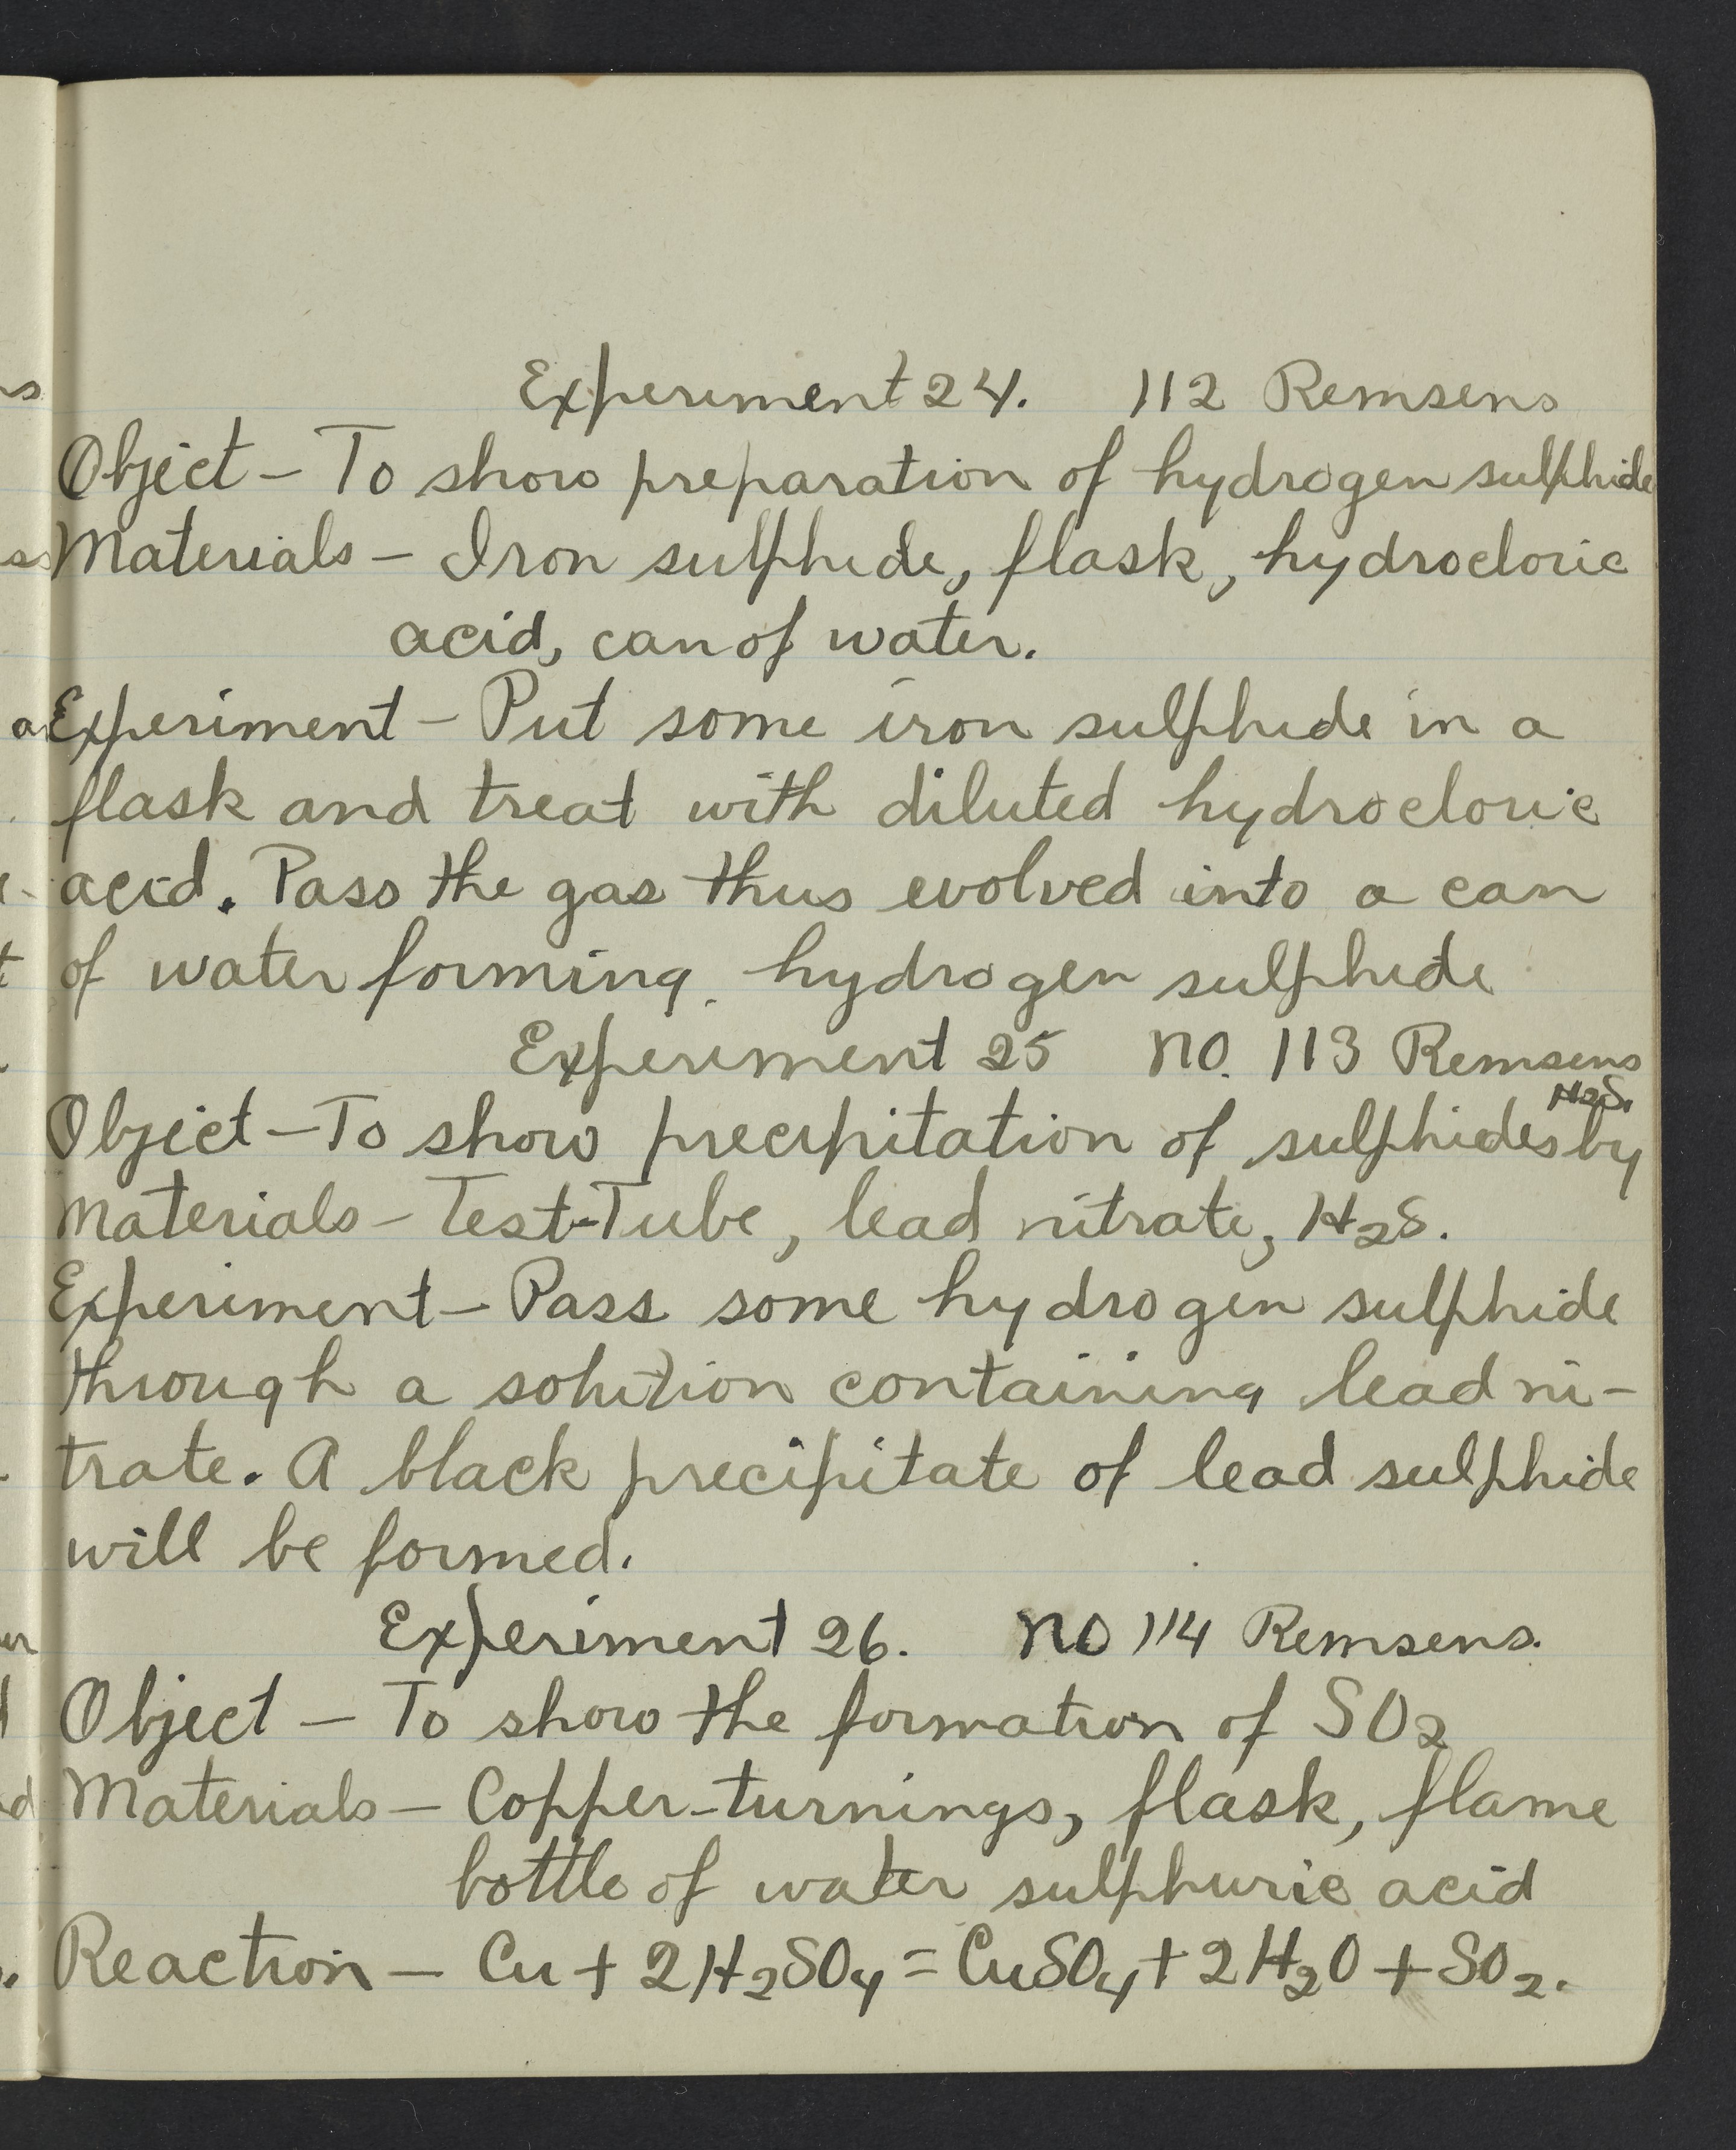 Experiment 24. 112 Remsens
Object - To show preparation of hydrogen sulphide
Materials - Iron sulphide, flask, hydrocloric
acid, can of water.
Experiment - Put some iron sulphide in a
flask and treat with diluted hydrocloric
acid. Pass the gas thus evolved into a can
of water forming hydrogen sulphide
Experiment 25 No. 113 Remsens
Object - To show precipitation of sulphides by H2S.
Materials - Test-Tube, lead nitrate, H2S.
Experiment - Pass some hydrogen sulphide
through a solution containing lead ni-
trate. A black precipitate of lead sulphide
will be formed.
Experiment 26. No 114 Remsens.
Object - To show the formation of SO2
Materials - Copper-turnings, flask, flame
bottle of water sulphuric acid
Reaction - Cu + 2H2SO4 = CuSO4 + 2H2O + SO2.